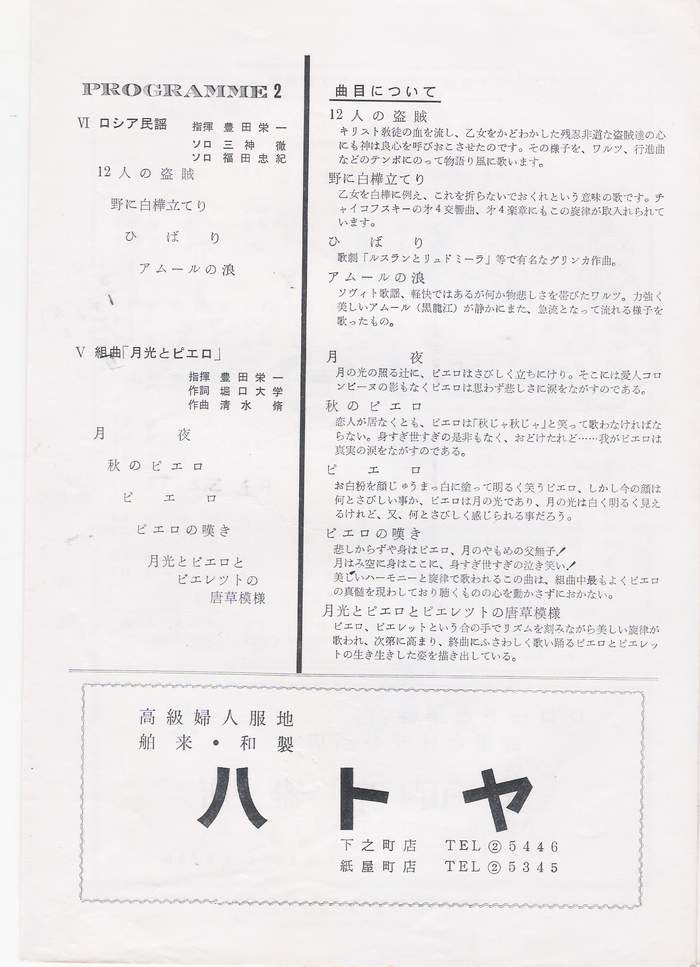 PROGRAMME 2
Ⅵ ロシア民謡 指揮 豊田栄一
ソロ 三神 徹
ソロ 福田忠紀
12人の盗賊
野に白樺立てり
ひばり
アムールの浪
Ⅴ 組曲「月光とピエロ」
指揮 豊田栄一
作詞 堀口大学
作曲 清水 脩
月 夜
秋のピエロ
ピエロ
ピエロの嘆き
月光とピエロと
ピエレツトの
唐草模様
曲目について
12人の盗賊
キリスト敎徒の血を流し、乙女をかどわかした残忍非道な盗賊達の心
にも神は良心を呼びおこさせたのです。その様子を、ワルツ、行進曲
などのテンポにのって物語り風に歌います。
野に白樺立てり
乙女を白樺に例え、これを折らないでおくれという意味の歌です。チ
ャイコフスキーの才4交響曲、才4楽章にもこの旋律が取入れられて
います。
ひばり
歌劇「ルスランとリュドミーラ」等で有名なグリンカ作曲。
アムールの浪
ソヴィト歌謡、軽快ではあるが何か物悲しさを帯びたワルツ。力強く
美しいアムール（黒龍江）が静かにまた、急流となって流れる様子を
歌ったもの。
月 夜
月の光の照る辻に、ピエロはさびしく立ちにけり。そこには愛人コロ
ンビーヌの影もなくピエロは思わず悲しさに涙をながすのである。
秋のピエロ
恋人が居なくとも、ピエロは「秋じゃ秋じゃ」と笑って歌わなければな
らない。身すぎ世すぎの是非もなく、おどけたれど……我がピエロは
真実の涙をながすのである。
ピエロ
お白粉を顔じゅうまっ白に塗って明るく笑うピエロ、しかし今の顔は
何とさびしい事か、ピエロは月の光であり、月の光は白く明るく見え
るけれど、又、何とさびしく感じられる事だろう。
ピエロの嘆き
悲しからずや身はピエロ、月のやもめの父無子！
月はみ空に身はここに、身すぎ世すぎの泣き笑い！
美しいハーモニーと旋律で歌われるこの曲は、組曲中最もよくピエロ
の真髄を現わしており聴くものの心を動かさずにおかない。
月光とピエロとピエレツトの唐草模様
ピエロ、ピエレットという合の手でリズムを刻みながら美しい旋律が
歌われ、次第に高まり、終曲にふさわしく歌い踊るピエロとピエレッ
トの生き生きした姿を描き出している。
高級婦人服地
舶来・和製
ハトヤ
下之町店 TEL②5446
紙屋町店 TEL②5345